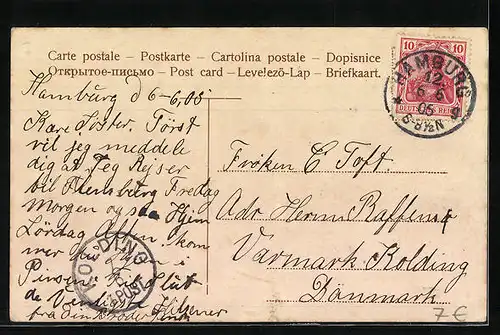 Carte postale – Postkarte – Cartolina postale – Dopisnice
Открытое-письмо – Post card – Levelező-Lap – Briefkaart.
10 10
DEUTSCHES REICH
HAMBURG
12
6 6
05
8-8½N
Hamburg d 6-6,05
Kare Søster. Først
vil jeg meddele
dig at Jeg Rejser
til Flensburg Fredag
Morgen og saa Hjem
Lørdag Aften. kom
mer
Pinsen. Slut
de Venligste Hilsner
fra din Broder
KOLDING
Frøken E Toft.
Adr Herm Raffem
Varmark Kolding
Danmark
7€